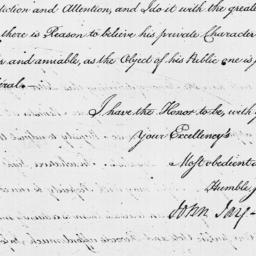 ection and Attention, and I do it with the greate
there is Reason to believe his private Character
and amiable, as the Object of his Public one is
eral.
I have the Honor to be, with
Your Excellency's
Most obedient a
Humble
John Jay